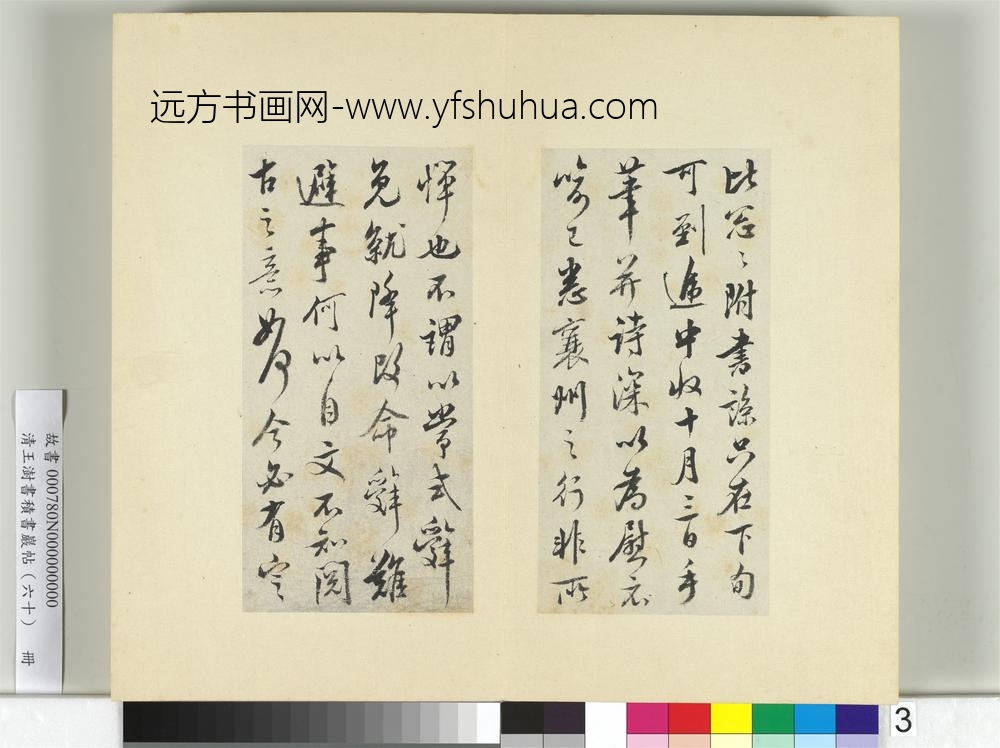 远方书画网-www.yfshuhua.com
比忽忽附書諒只在下旬
可到遞中收十月三日手
筆并詩深以為慰示
喻已悉襄州之行非所
憚也不謂以常式辭
免就降改命辭難
避事何以自文不知閤
古之意如何今必有定
故書 000780N000000000
清王澍書積書巖帖（六十） 冊
3